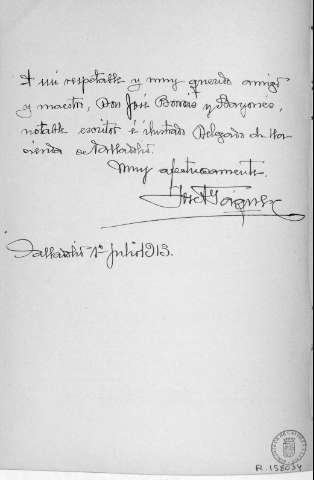 A mi respetable y muy querido amigo
y maestro, Don José Borrás y Bayonés,
notable escritor é ilustrado Delegado de Ha-
cienda de Valladolid.
Muy afectuosamente.
José
Valladolid 1º Julio 1913.
R. 158034